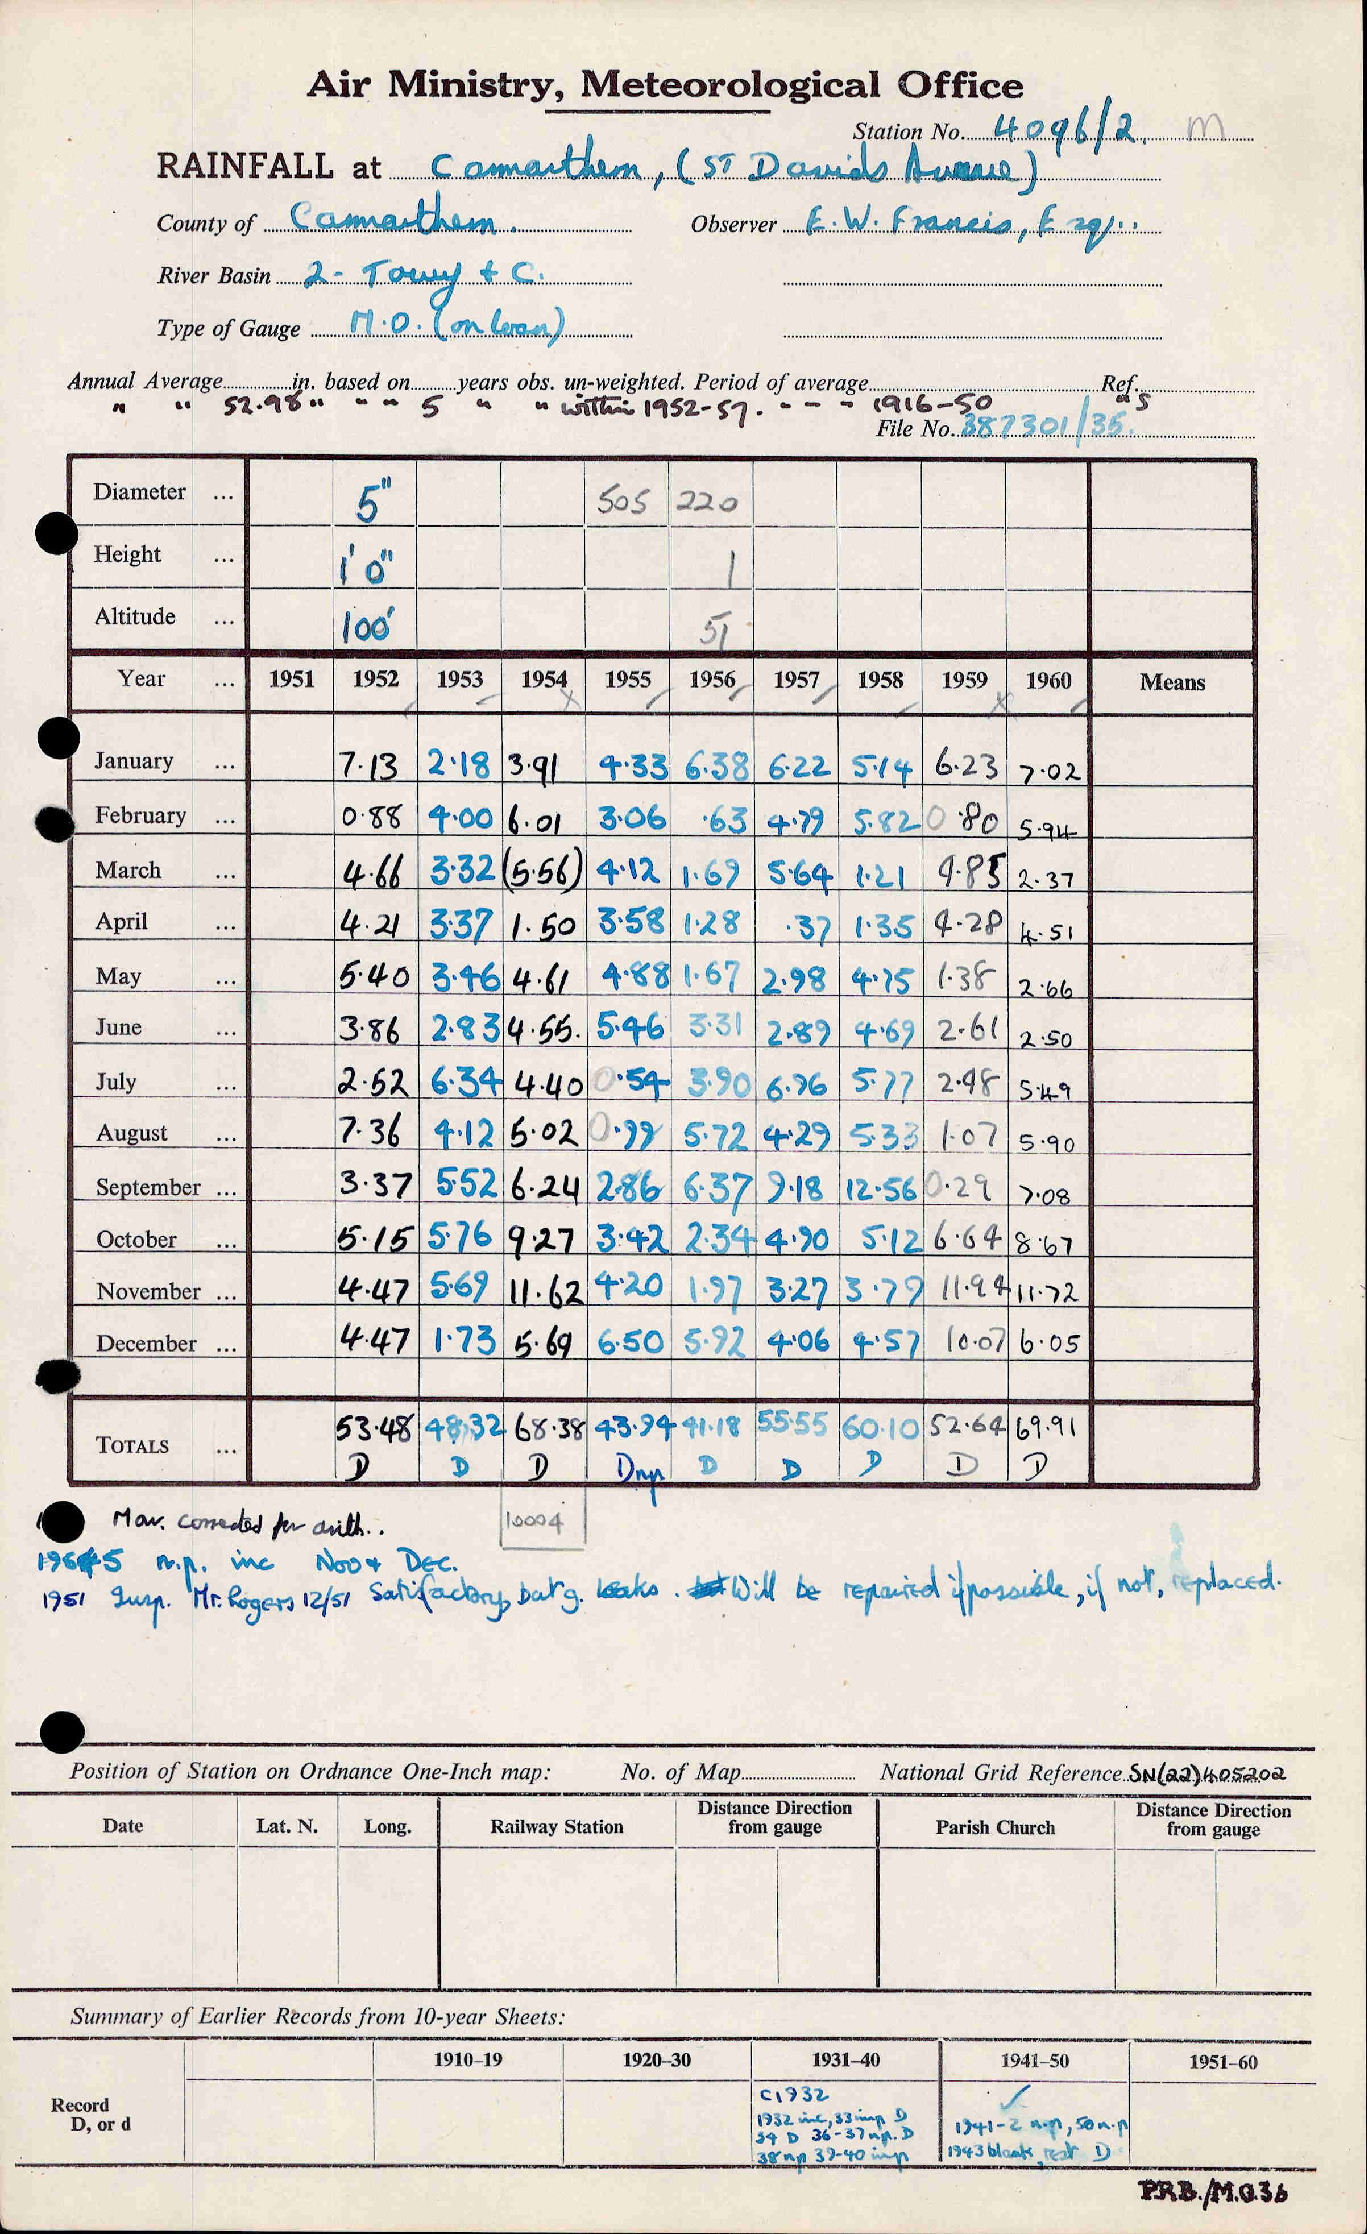 Air Ministry, Meteorological Office
Station No. 4096/2. m
RAINFALL at Carmarthen, (St Davids Avenue)
County of Carmarthen. Observer E. W. Francis, Esq..
River Basin 2- Towy + C.
Type of Gauge M.O. (on loan)
Annual Average in. based on years obs. un-weighted. Period of average Ref.
" " 52.98 " " " 5 " " within 1952-57. - - - 1916-50 "S
File No. 387301/35.
Diameter ... 5" 505 220
Height ... 1' 0" 1
Altitude ... 100' 51
Year ... 1951 1952 1953 1954 1955 1956 1957 1958 1959 1960 Means
January ... 7.13 2.18 3.91 4.33 6.38 6.22 5.14 6.23 7.02
February ... 0.88 4.00 6.01 3.06 .63 4.79 5.82 0.80 5.94
March ... 4.66 3.32 (5.56) 4.12 1.69 5.64 1.21 4.85 2.37
April ... 4.21 3.37 1.50 3.58 1.28 .37 1.35 4.28 4.51
May ... 5.40 3.46 4.61 4.88 1.67 2.98 4.75 1.38 2.66
June ... 3.86 2.83 4.55. 5.46 3.31 2.89 4.69 2.61 2.50
July ... 2.52 6.34 4.40 0.54 3.90 6.96 5.77 2.48 5.49
August ... 7.36 4.12 5.02 0.99 5.72 4.29 5.33 1.07 5.90
September ... 3.37 5.52 6.24 2.86 6.37 9.18 12.56 0.29 7.08
October ... 5.15 5.76 9.27 3.42 2.34 4.90 5.12 6.64 8.67
November ... 4.47 5.69 11.62 4.20 1.97 3.27 3.79 11.94 11.72
December ... 4.47 1.73 5.69 6.50 5.92 4.06 4.57 10.07 6.05
TOTALS ... 53.48 48.32 68.38 43.94 41.18 55.55 60.10 52.64 69.91
D D D Dnp D D D D D
Mar. corrected for arith.. 10004
n.p. inc Nov + Dec.
1951 Insp. Mr. Rogers 12/51 Satisfactory, but g. leaks. Will be repaired if possible, if not, replaced.
Position of Station on Ordnance One-Inch map: No. of Map National Grid Reference SN(22)405202
Date Lat. N. Long. Railway Station Distance Direction from gauge Parish Church Distance Direction from gauge
Summary of Earlier Records from 10-year Sheets:
1910–19 1920–30 1931–40 1941–50 1951–60
Record D, or d
C1932
1932 inc, 33 imp D
34 D 36-37 np. D
38 np 39-40 imp
1941-2 n.p, 50 n.p
1943 blank, rest D
P.R.B./M.O.36